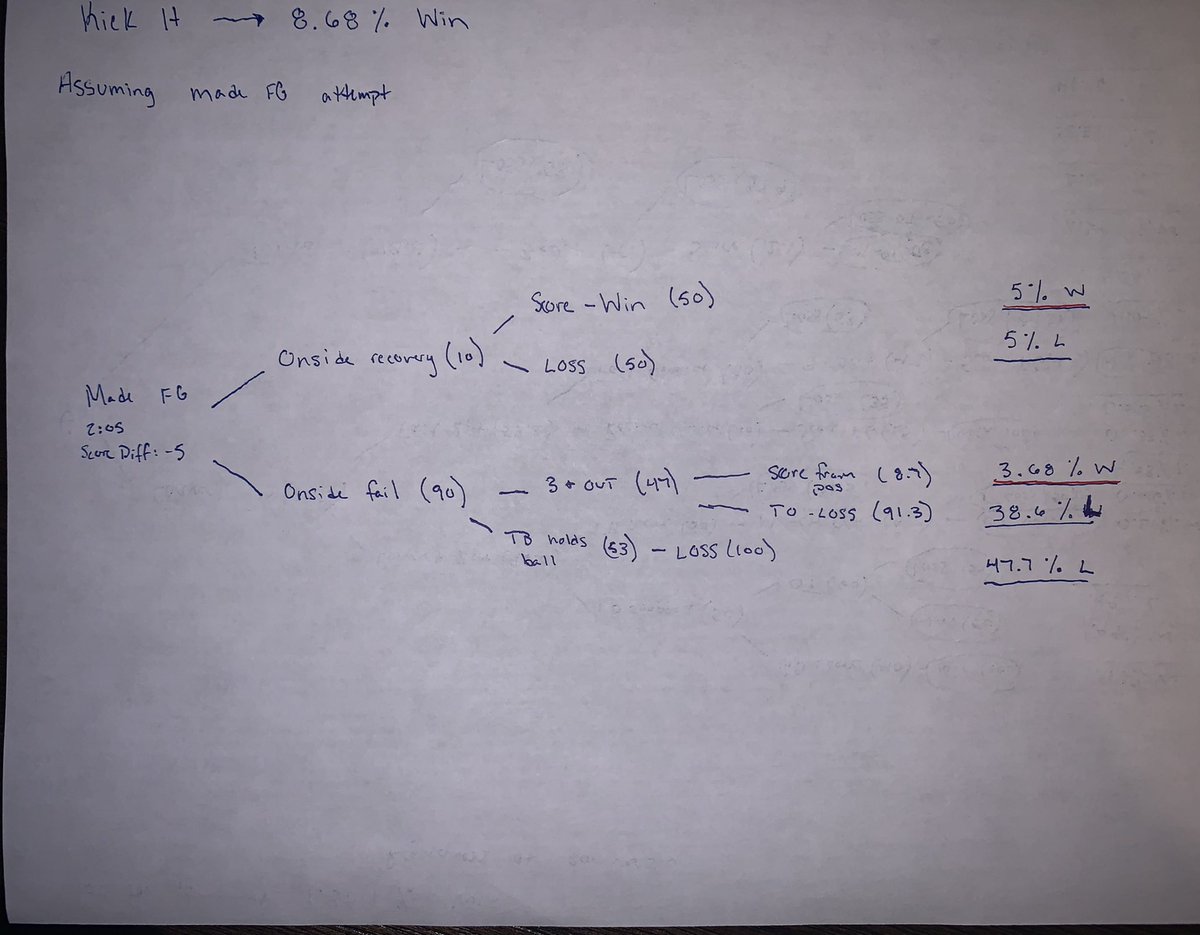 Kick It → 8.68% Win
Assuming made FG attempt
Score - Win (50)
5% W
Onside recovery (10)
LOSS (50)
5% L
Made FG
2:05
Score Diff: -5
Onside fail (90)
3 + OUT (47)
Score from pos (8.7)
3.68% W
TO - LOSS (91.3)
38.6% L
TB holds ball (53) - LOSS (100)
47.7% L